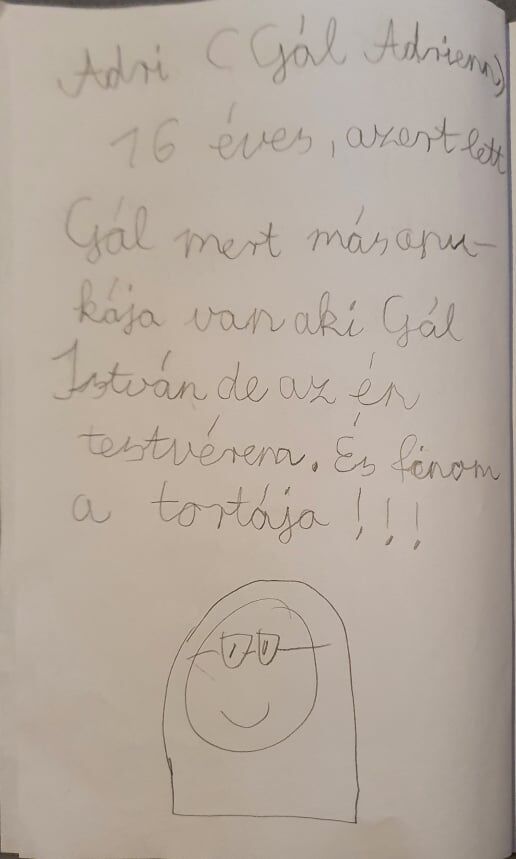 Adri (Gál Adrienn)
16 éves, azert lett
Gál mert másapu-
kája van aki Gál
István de az én
testvérem. És finom
a tortája!!!